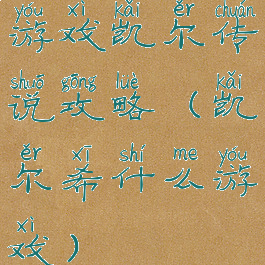 yóu xì kǎi ěr chuán
游戏凯尔传
shuō gōng lüè kǎi
说攻略（凯
ěr xī shí me yóu
尔希什么游
xì
戏）